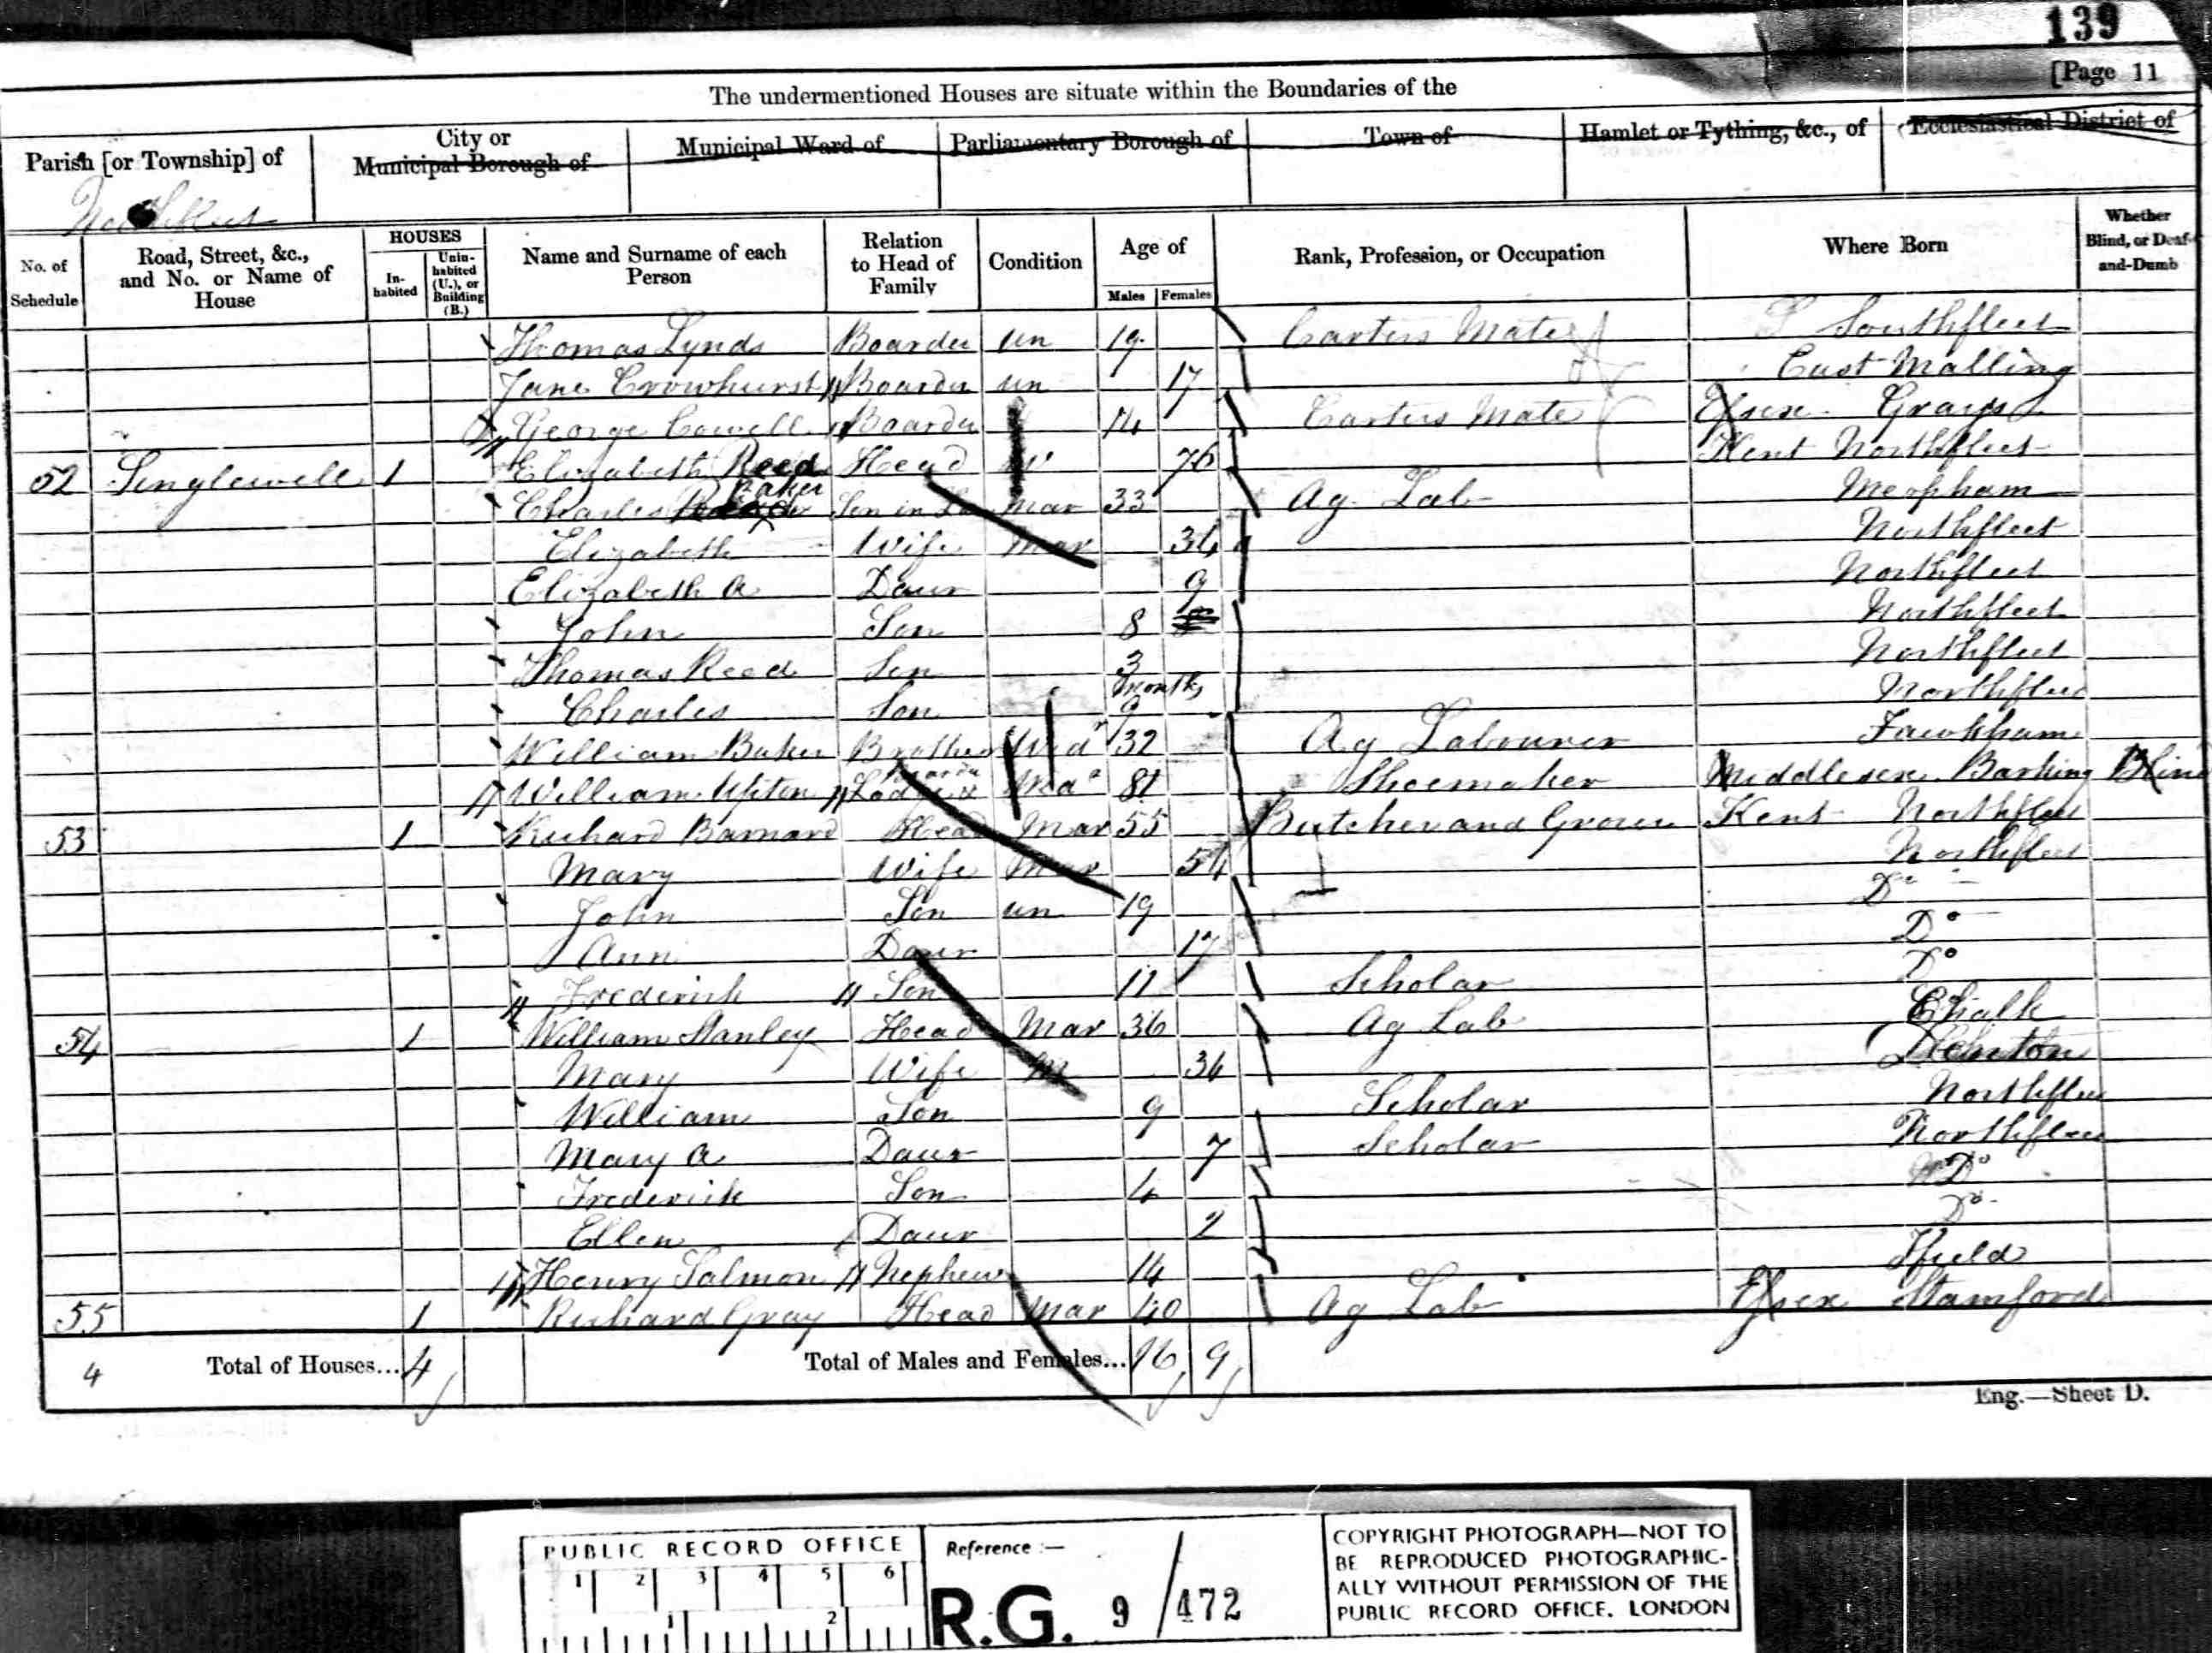 139
[Page 11
The undermentioned Houses are situate within the Boundaries of the
Parish [or Township] of
City or Municipal Borough of
Municipal Ward of
Parliamentary Borough of
Town of
Hamlet or Tything, &c., of
Ecclesiastical District of
Northfleet
No. of Schedule
Road, Street, &c., and No. or Name of House
HOUSES
In-habited
Unin-habited (U.), or Building (B.)
Name and Surname of each Person
Relation to Head of Family
Condition
Age of
Males
Females
Rank, Profession, or Occupation
Where Born
Whether Blind, or Deaf-and-Dumb
Thomas Lynds Boarder un 19 Carters Mate Southfleet
Jane Crowhurst Boarder un 17 East Malling
George Cowell Boarder 14 Carters Mate Essex Grays
52 Singlewell 1 Elizabeth Reed Head W 76 Kent Northfleet
Charles Baker Son in La Mar 33 Ag Lab Meopham
Elizabeth Wife Mar 34 Northfleet
Elizabeth A Daur 9 Northfleet
John Son 8 Northfleet
Thomas Reed Son 3 Northfleet
Charles Son months 9 Northfleet
William Baker Brother Widr 32 Ag Labourer Fawkham
William Upton Boarder Wid 81 Shoemaker Middlesex Barking Blind
53 1 Richard Barnard Head Mar 55 Butcher and Grocer Kent Northfleet
Mary Wife Mar 54 Northfleet
John Son un 19 Do
Ann Daur 17 Do
Frederick Son 11 Scholar Do
54 1 William Stanley Head Mar 36 Ag Lab Chalk
Mary Wife M 36 Denton
William Son 9 Scholar Northfleet
Mary A Daur 7 Scholar Northfleet
Frederick Son 4 Do
Ellen Daur 2 Do
Henry Salmon Nephew 14 Ifield
55 1 Richard Gray Head Mar 40 Ag Lab Essex Stamford
4 Total of Houses... 4 Total of Males and Females... 16 9
Eng.—Sheet D.
PUBLIC RECORD OFFICE
1 2 3 4 5 6
1 2
Reference :—
R.G. 9 / 472
COPYRIGHT PHOTOGRAPH—NOT TO
BE REPRODUCED PHOTOGRAPHIC-
ALLY WITHOUT PERMISSION OF THE
PUBLIC RECORD OFFICE, LONDON